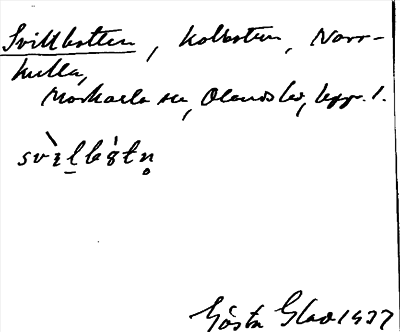 Svillbotten, kolbotten, Norr-
kulla,
Morkarla sn, Olands hd, Uppl.
svìlbòtn̥
Gösta Glad 1937